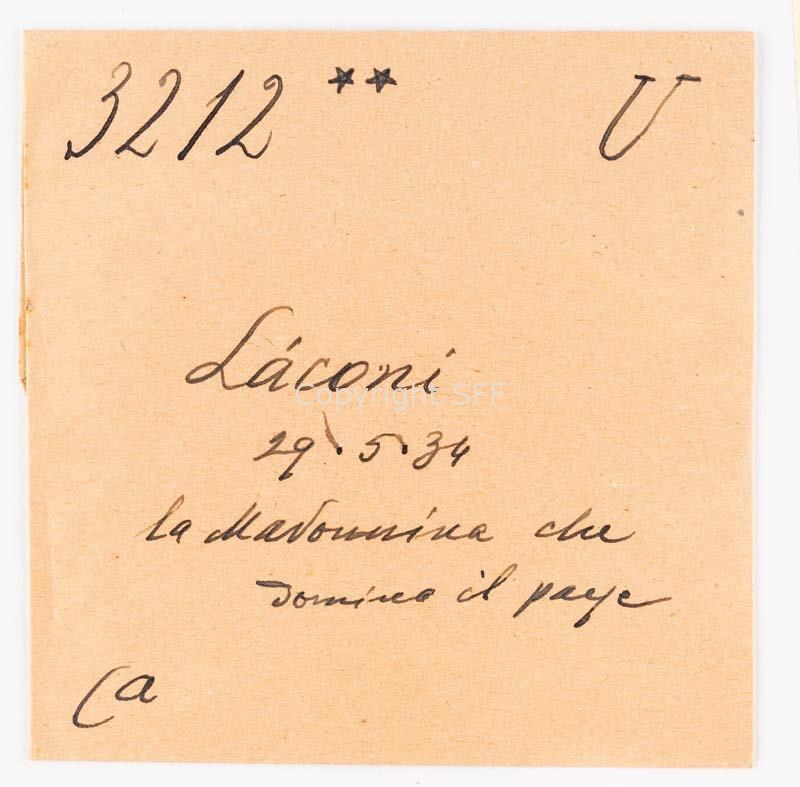 3212 ** U
Láconi
Copyright SFF
29.5.34
la Madonnina che
domina il paese
Ca